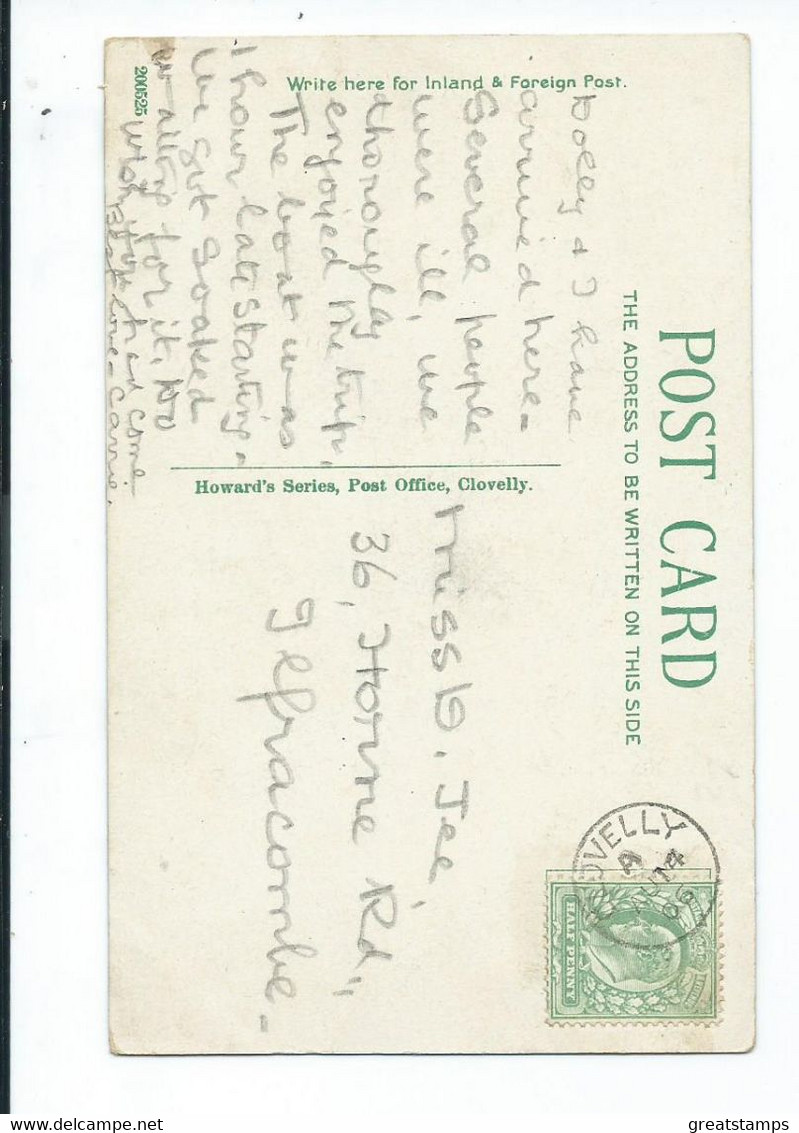 POST CARD
THE ADDRESS TO BE WRITTEN ON THIS SIDE
Write here for Inland & Foreign Post.
Dolly & I have
arrived here -
Several people
were ill, we
thoroughly
enjoyed the trip.
The boat was
1 hour late starting -
We got soaked
waiting for it.
wish you had come
Best love - Carrie.
Howard's Series, Post Office, Clovelly.
200525
Miss D. Jee,
36, Horne Rd,,
Ilfracombe -
CLOVELLY
HALF PENNY
greatstamps